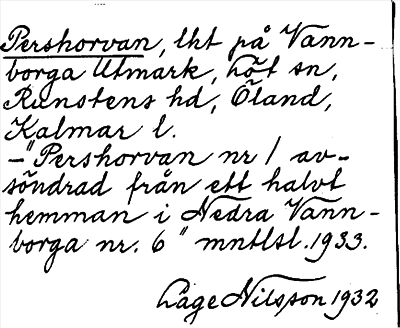 Pershorvan, lht på Vann-
borga Utmark, Löt sn,
Runstens hd, Öland,
Kalmar l.
–"Pershorvan nr 1 av-
söndrad från ett halvt
hemman i Nedra Vann-
borga nr. 6" mntlsl. 1933.
Låge Nilsson 1932